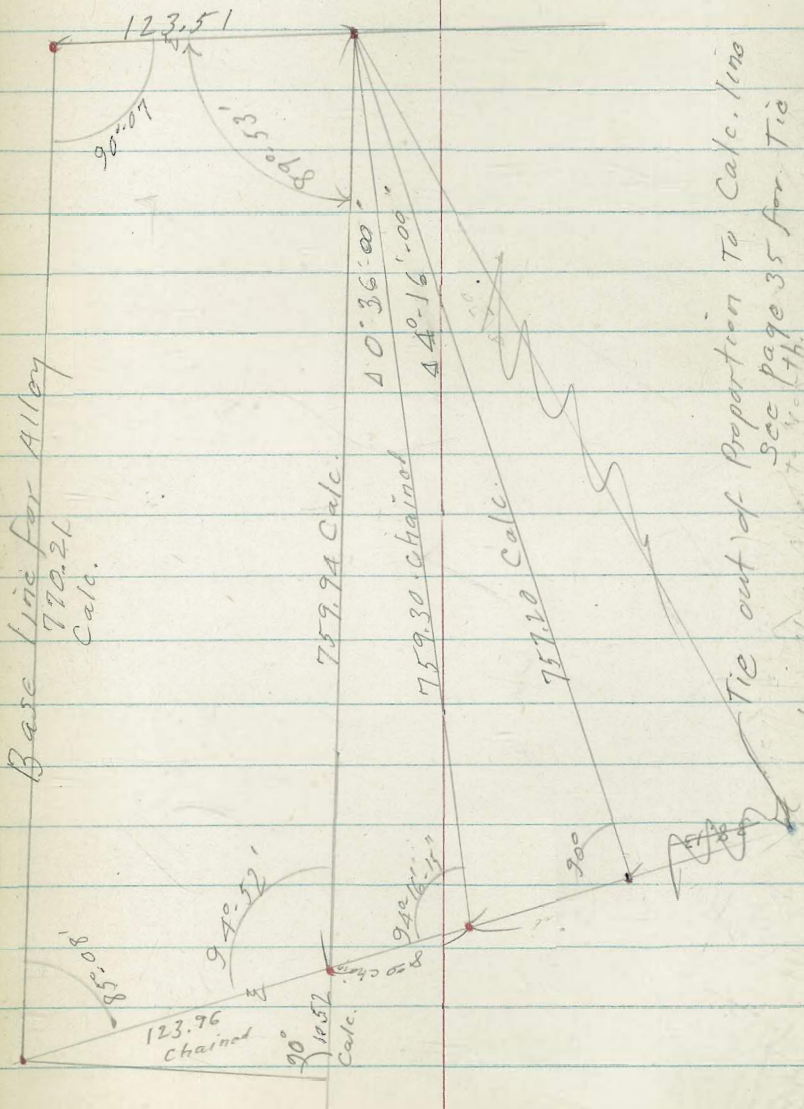 123.51
90°-07
89°-53'
Base Line For Alley
770.21
Calc.
759.94 Calc.
0°-36'-00"
4°-16'-00"
759.30 Chained
757.20 Calc.
Tie out of Proportion To Calc. line
See page 35 for Tie
85°-08'
94°-52'
94°-16'
90°
123.96
Chained
90°
10.52
Calc.